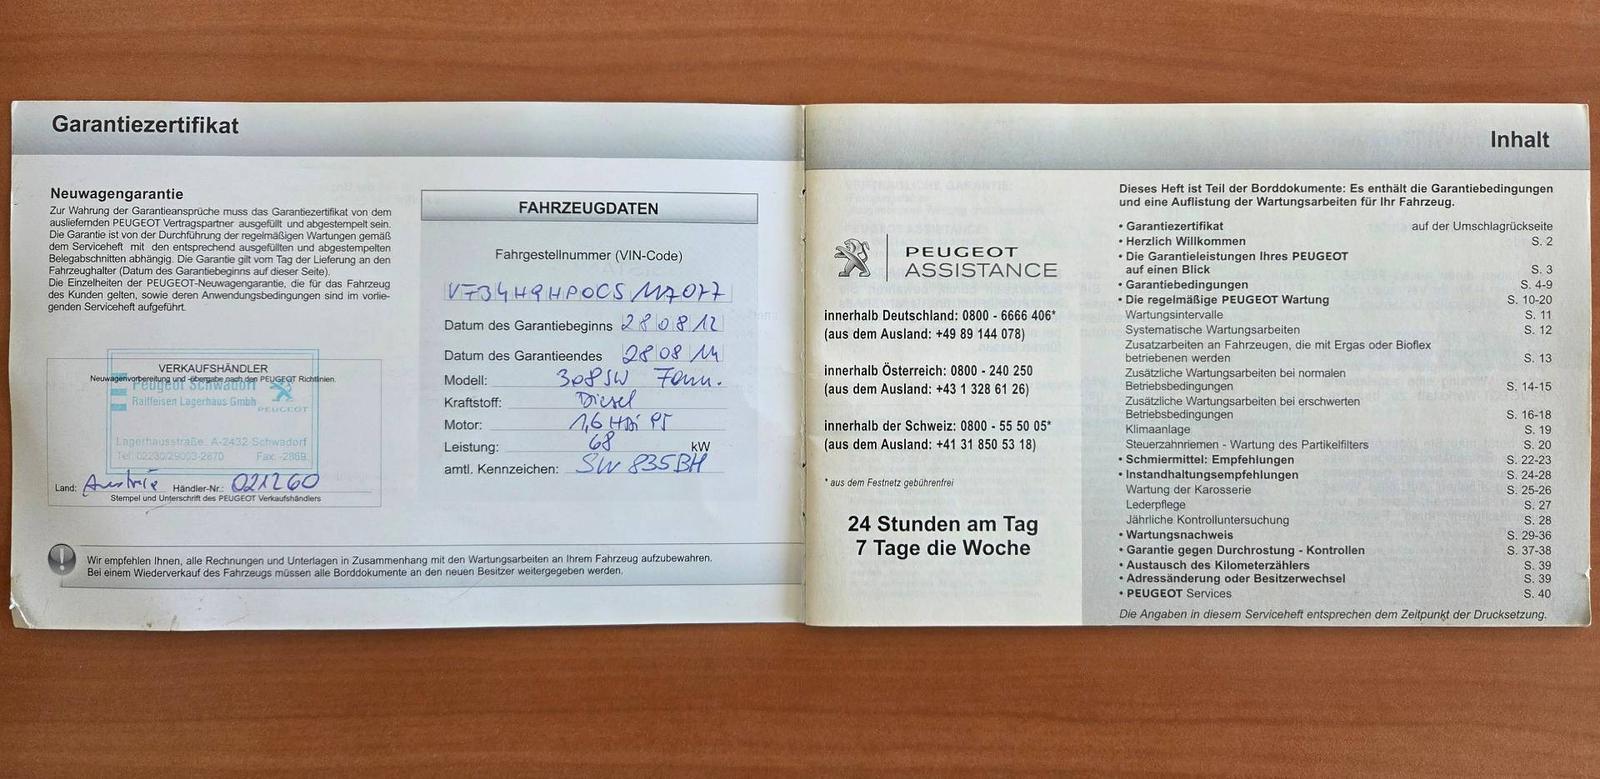 Garantiezertifikat
Neuwagengarantie
Zur Wahrung der Garantieansprüche muss das Garantiezertifikat von dem
ausliefernden PEUGEOT Vertragspartner ausgefüllt und abgestempelt sein.
Die Garantie ist von der Durchführung der regelmäßigen Wartungen gemäß
dem Serviceheft mit den entsprechend ausgefüllten und abgestempelten
Belegabschnitten abhängig. Die Garantie gilt vom Tag der Lieferung an den
Fahrzeughalter (Datum des Garantiebeginns auf dieser Seite).
Die Einzelheiten der PEUGEOT-Neuwagengarantie, die für das Fahrzeug
des Kunden gelten, sowie deren Anwendungsbedingungen sind im vorlie-
genden Serviceheft aufgeführt.
VERKAUFSHÄNDLER
Neuwagenvorbereitung und -übergabe nach den PEUGEOT Richtlinien.
Peugeot Schwadorf
Raiffeisen Lagerhaus Gmbh
PEUGEOT
Lagerhausstraße, A-2432 Schwadorf
Tel: 02230/29003-2870 Fax: -2869
Land: Austria Händler-Nr.: 021260
Stempel und Unterschrift des PEUGEOT Verkaufshändlers
FAHRZEUGDATEN
Fahrgestellnummer (VIN-Code)
VF34H9HP0CS117077
Datum des Garantiebeginns 28 08 12
Datum des Garantieendes 28 08 14
Modell: 308SW
Kraftstoff: Diesel
Motor: 1,6 HDi
Leistung: 68 kW
amtl. Kennzeichen: SW 835BH
Wir empfehlen Ihnen, alle Rechnungen und Unterlagen in Zusammenhang mit den Wartungsarbeiten an Ihrem Fahrzeug aufzubewahren.
Bei einem Wiederverkauf des Fahrzeugs müssen alle Borddokumente an den neuen Besitzer weitergegeben werden.
PEUGEOT
ASSISTANCE
innerhalb Deutschland: 0800 - 6666 406*
(aus dem Ausland: +49 89 144 078)
innerhalb Österreich: 0800 - 240 250
(aus dem Ausland: +43 1 328 61 26)
innerhalb der Schweiz: 0800 - 55 50 05*
(aus dem Ausland: +41 31 850 53 18)
* aus dem Festnetz gebührenfrei
24 Stunden am Tag
7 Tage die Woche
Inhalt
Dieses Heft ist Teil der Borddokumente: Es enthält die Garantiebedingungen
und eine Auflistung der Wartungsarbeiten für Ihr Fahrzeug.
• Garantiezertifikat auf der Umschlagrückseite
• Herzlich Willkommen S. 2
• Die Garantieleistungen Ihres PEUGEOT
auf einen Blick S. 3
• Garantiebedingungen S. 4-9
• Die regelmäßige PEUGEOT Wartung S. 10-20
Wartungsintervalle S. 11
Systematische Wartungsarbeiten S. 12
Zusatzarbeiten an Fahrzeugen, die mit Ergas oder Bioflex
betriebenen werden S. 13
Zusätzliche Wartungsarbeiten bei normalen
Betriebsbedingungen S. 14-15
Zusätzliche Wartungsarbeiten bei erschwerten
Betriebsbedingungen S. 16-18
Klimaanlage S. 19
Steuerzahnriemen - Wartung des Partikelfilters S. 20
• Schmiermittel: Empfehlungen S. 22-23
• Instandhaltungsempfehlungen S. 24-28
Wartung der Karosserie S. 25-26
Lederpflege S. 27
Jährliche Kontrolluntersuchung S. 28
• Wartungsnachweis S. 29-36
• Garantie gegen Durchrostung - Kontrollen S. 37-38
• Austausch des Kilometerzählers S. 39
• Adressänderung oder Besitzerwechsel S. 39
• PEUGEOT Services S. 40
Die Angaben in diesem Serviceheft entsprechen dem Zeitpunkt der Drucksetzung.